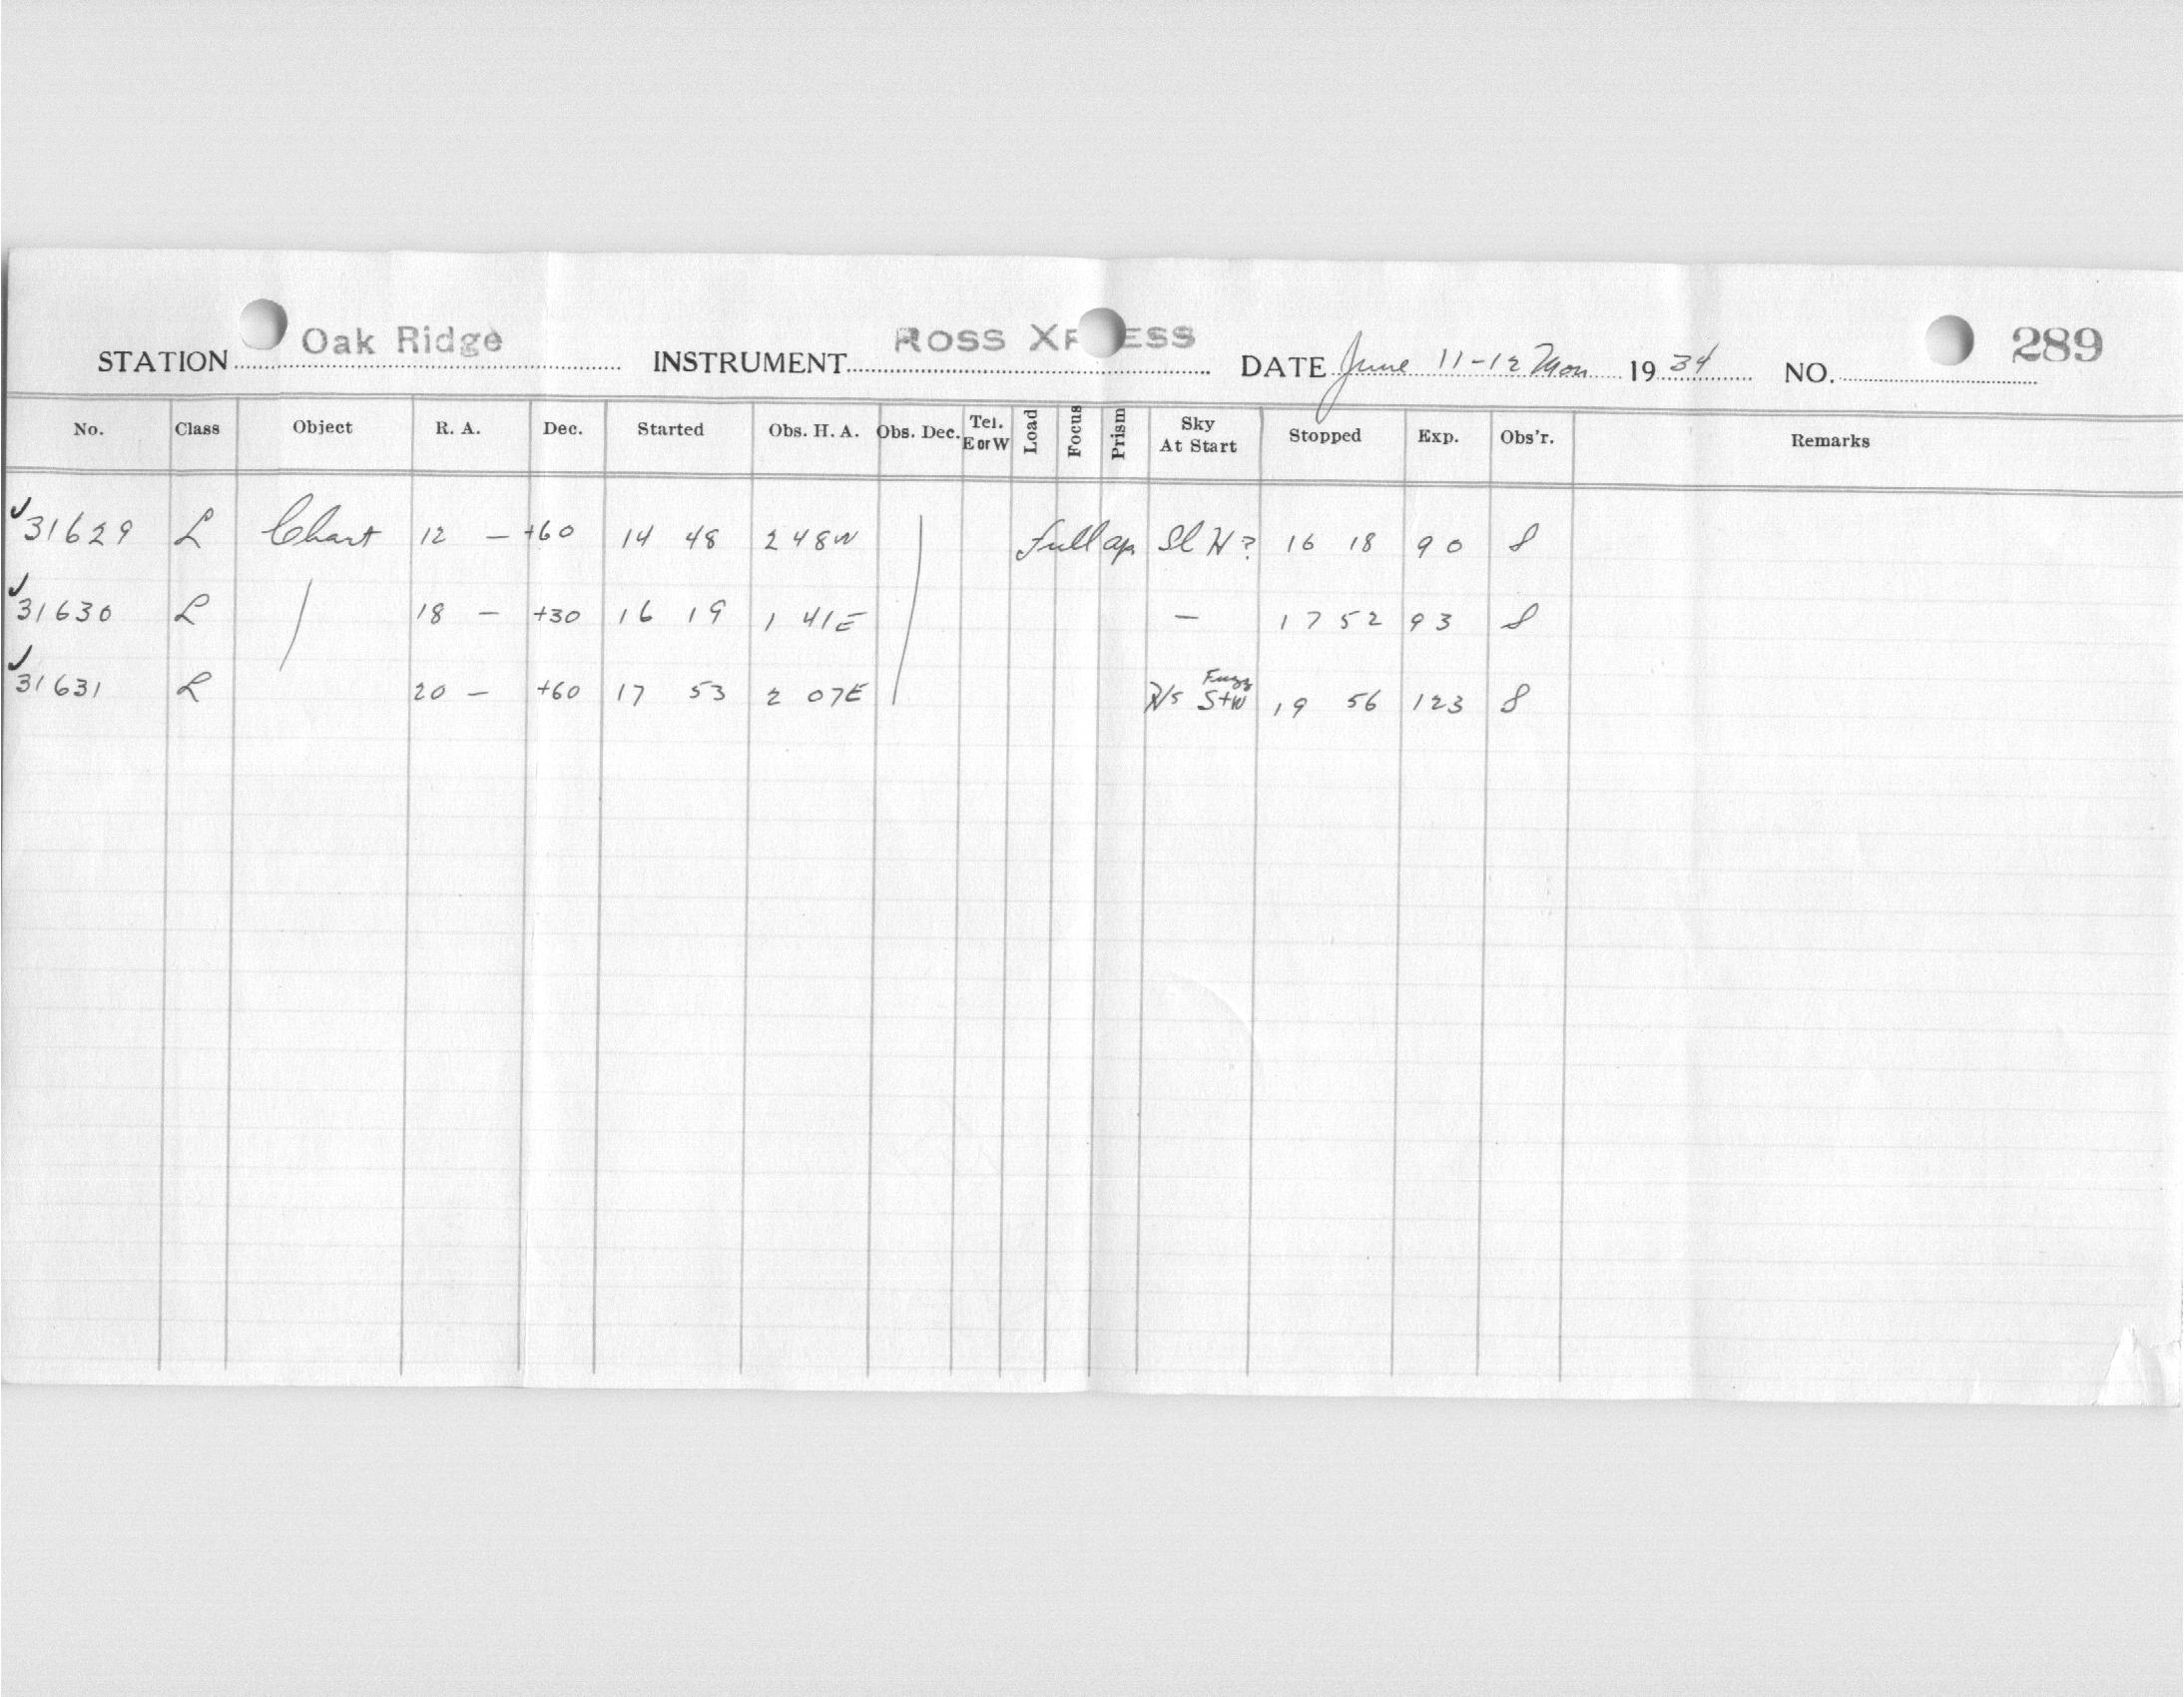 STATION Oak Ridge INSTRUMENT ROSS XPRESS DATE June 11-12 Mon 1934 NO. 289
No. Class Object R. A. Dec. Started Obs. H. A. Obs. Dec. Tel. E or W Load Focus Prism Sky At Start Stopped Exp. Obs'r. Remarks
✓31629 L Chart 12 — +60 14 48 2 48W Full ap. Sl H? 16 18 90 S
✓31630 L 18 — +30 16 19 1 41E — 17 52 93 S
✓31631 L 20 — +60 17 53 2 07E Fuzz S+W 19 56 123 S